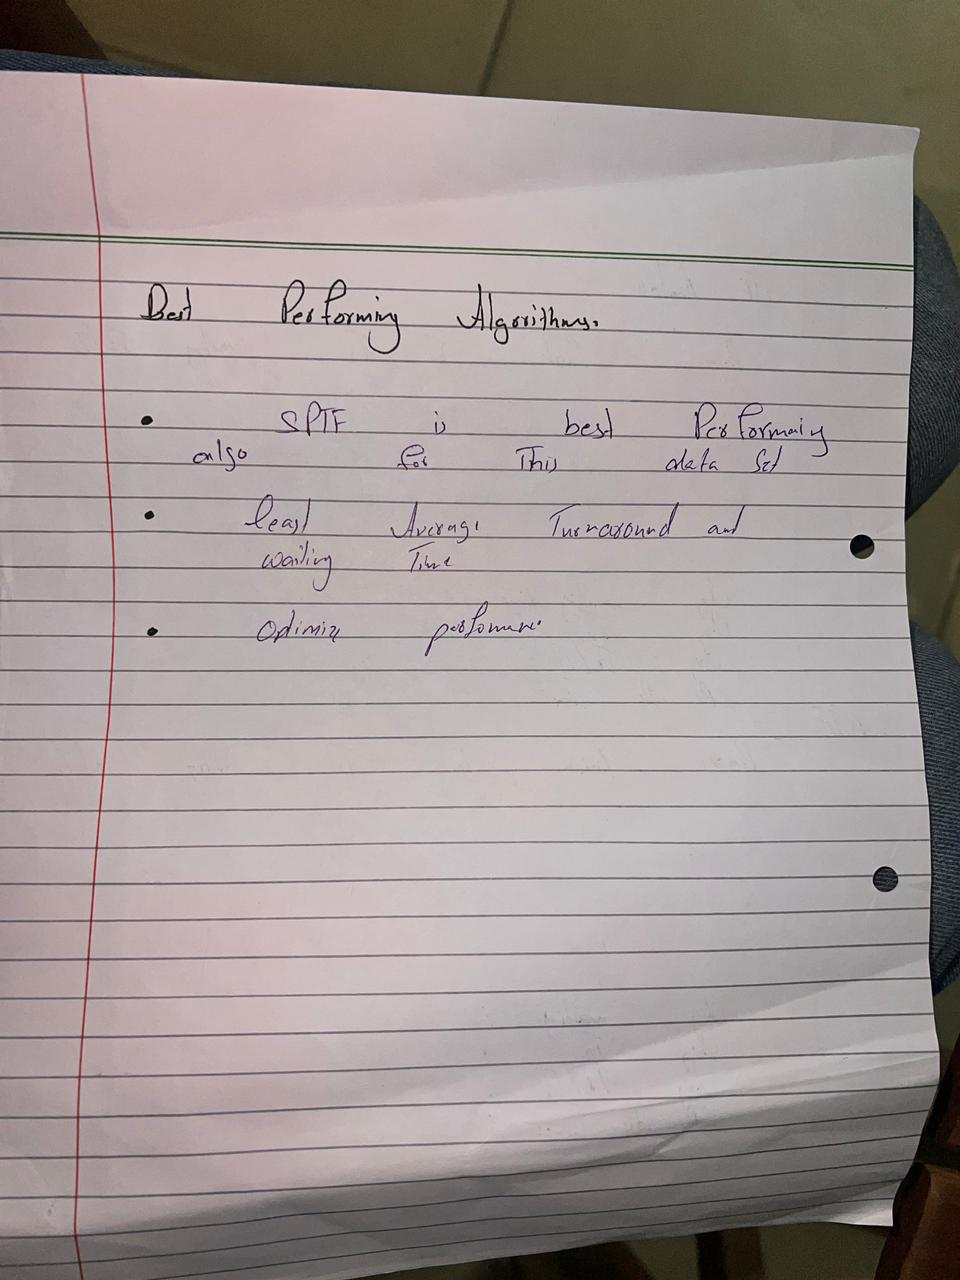 Best Performing Algorithms.
• SPTF is best Performaing
algo for This data Set
• least Average Turnaround and
waiting Time
• Optimize